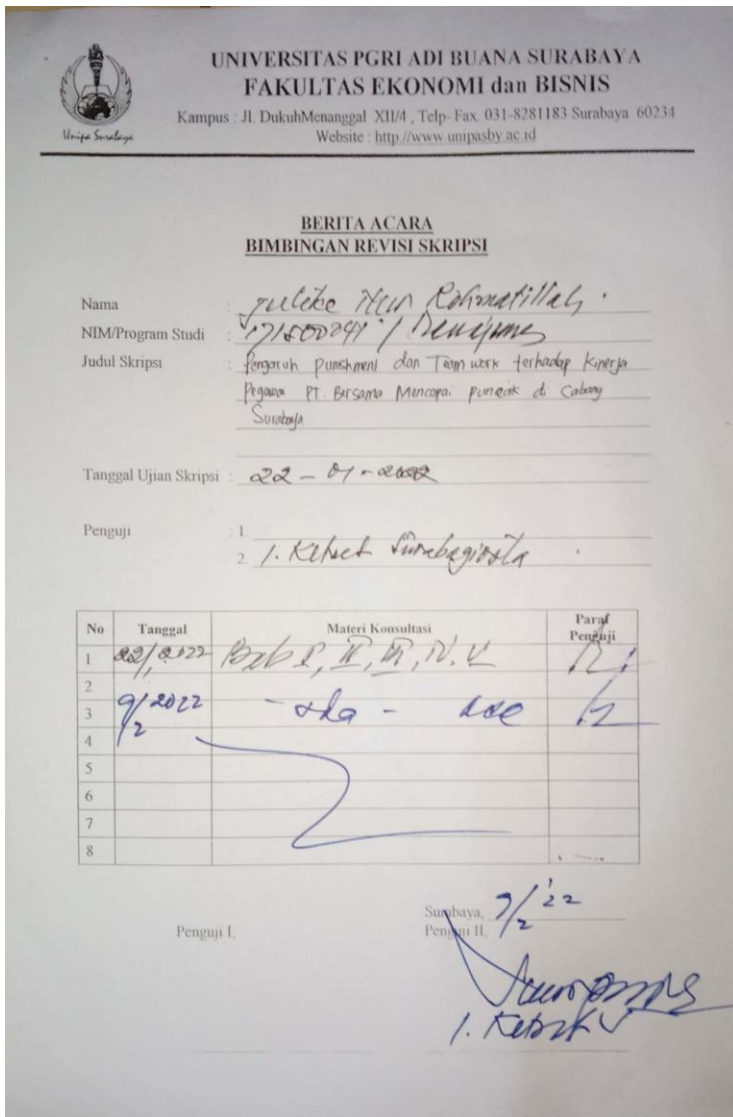 Unipa Surabaya
UNIVERSITAS PGRI ADI BUANA SURABAYA
FAKULTAS EKONOMI dan BISNIS
Kampus : Jl. DukuhMenanggal XII/4 , Telp- Fax. 031-8281183 Surabaya 60234
Website : http://www.unipasby.ac.id
BERITA ACARA
BIMBINGAN REVISI SKRIPSI
Nama : Nur Rohmatillah
NIM/Program Studi : /
Judul Skripsi : Pengaruh Punishment dan Team work terhadap Kinerja
Pegawai PT. Bersama Mencapai Puncak di Cabang
Surabaya
Tanggal Ujian Skripsi : 22 - 01 - 2022
Penguji : 1.
2. I. Ketut
No Tanggal Materi Konsultasi Paraf Penguji
1 2022 Bab I, II, III, IV, V
2
3 9/2 2022
4
5
6
7
8
Surabaya, 9/2 '22
Penguji I, Penguji II,
I. Ketut